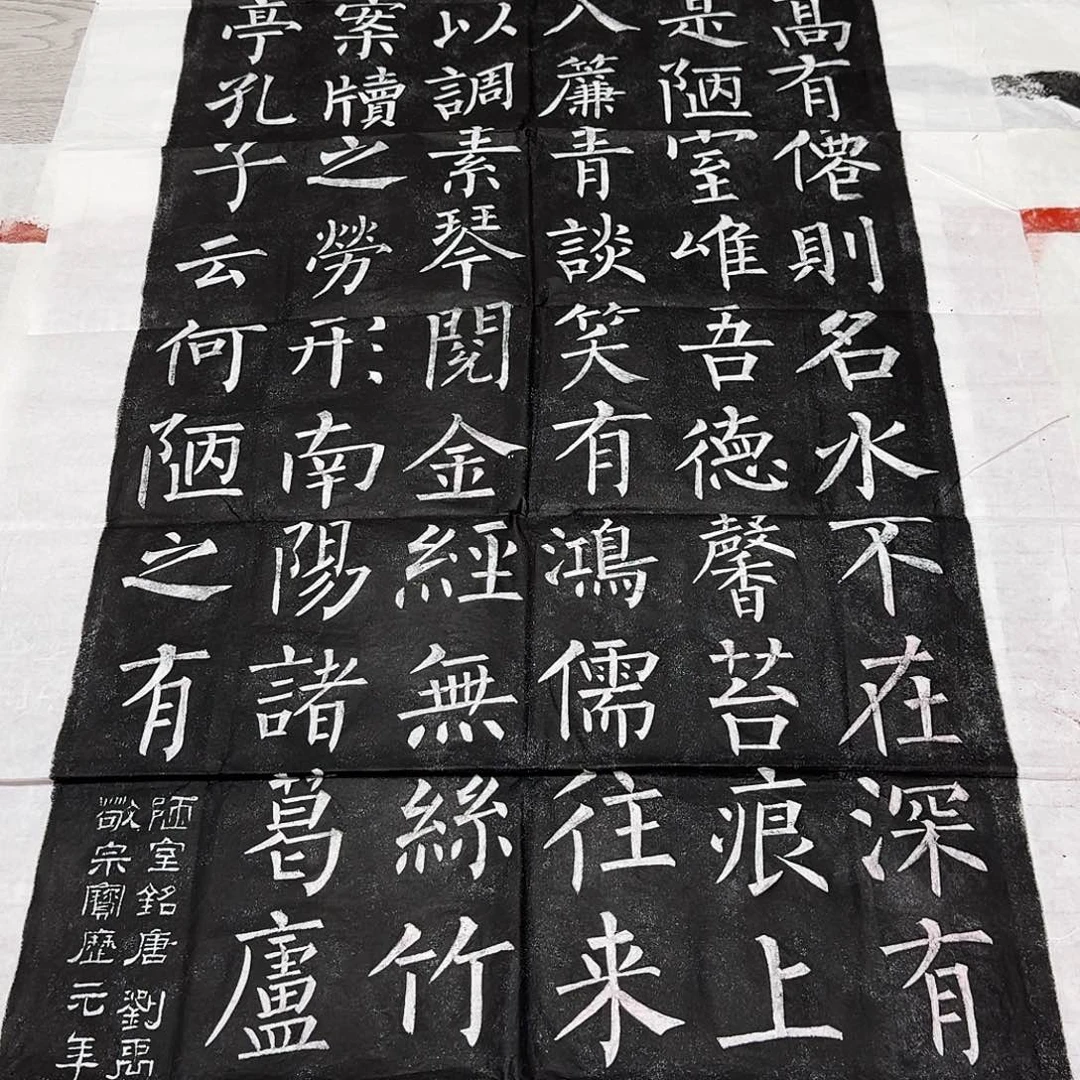 高有僊則名水不在深有
是陋室惟吾德馨苔痕上
入簾青談笑有鴻儒往来
以調素琴閱金經無絲竹
案牘之勞形南陽諸葛廬
亭孔子云何陋之有
陋室銘唐劉禹
敬宗寶歷元年